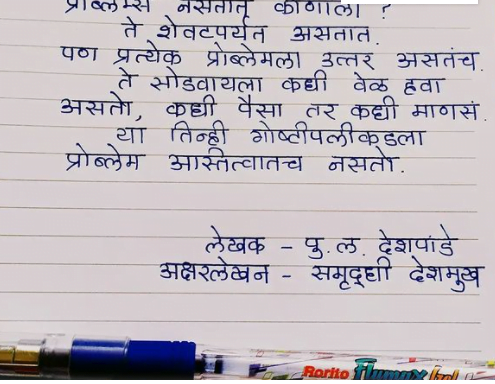 प्रॉब्लेम्स नसतात कोणाला ?
ते शेवटपर्यंत असतात.
पण प्रत्येक प्रोब्लेमला उत्तर असतंच.
ते सोडवायला कधी वेळ हवा
असतो, कधी पैसा तर कधी माणसं.
या तिन्ही गोष्टीपलीकडला
प्रोब्लेम आस्तित्वातच नसतो.
लेखक - पु. ल. देशपांडे
अक्षरलेखन - समृद्धी देशमुख
Rorito Flymax Gel